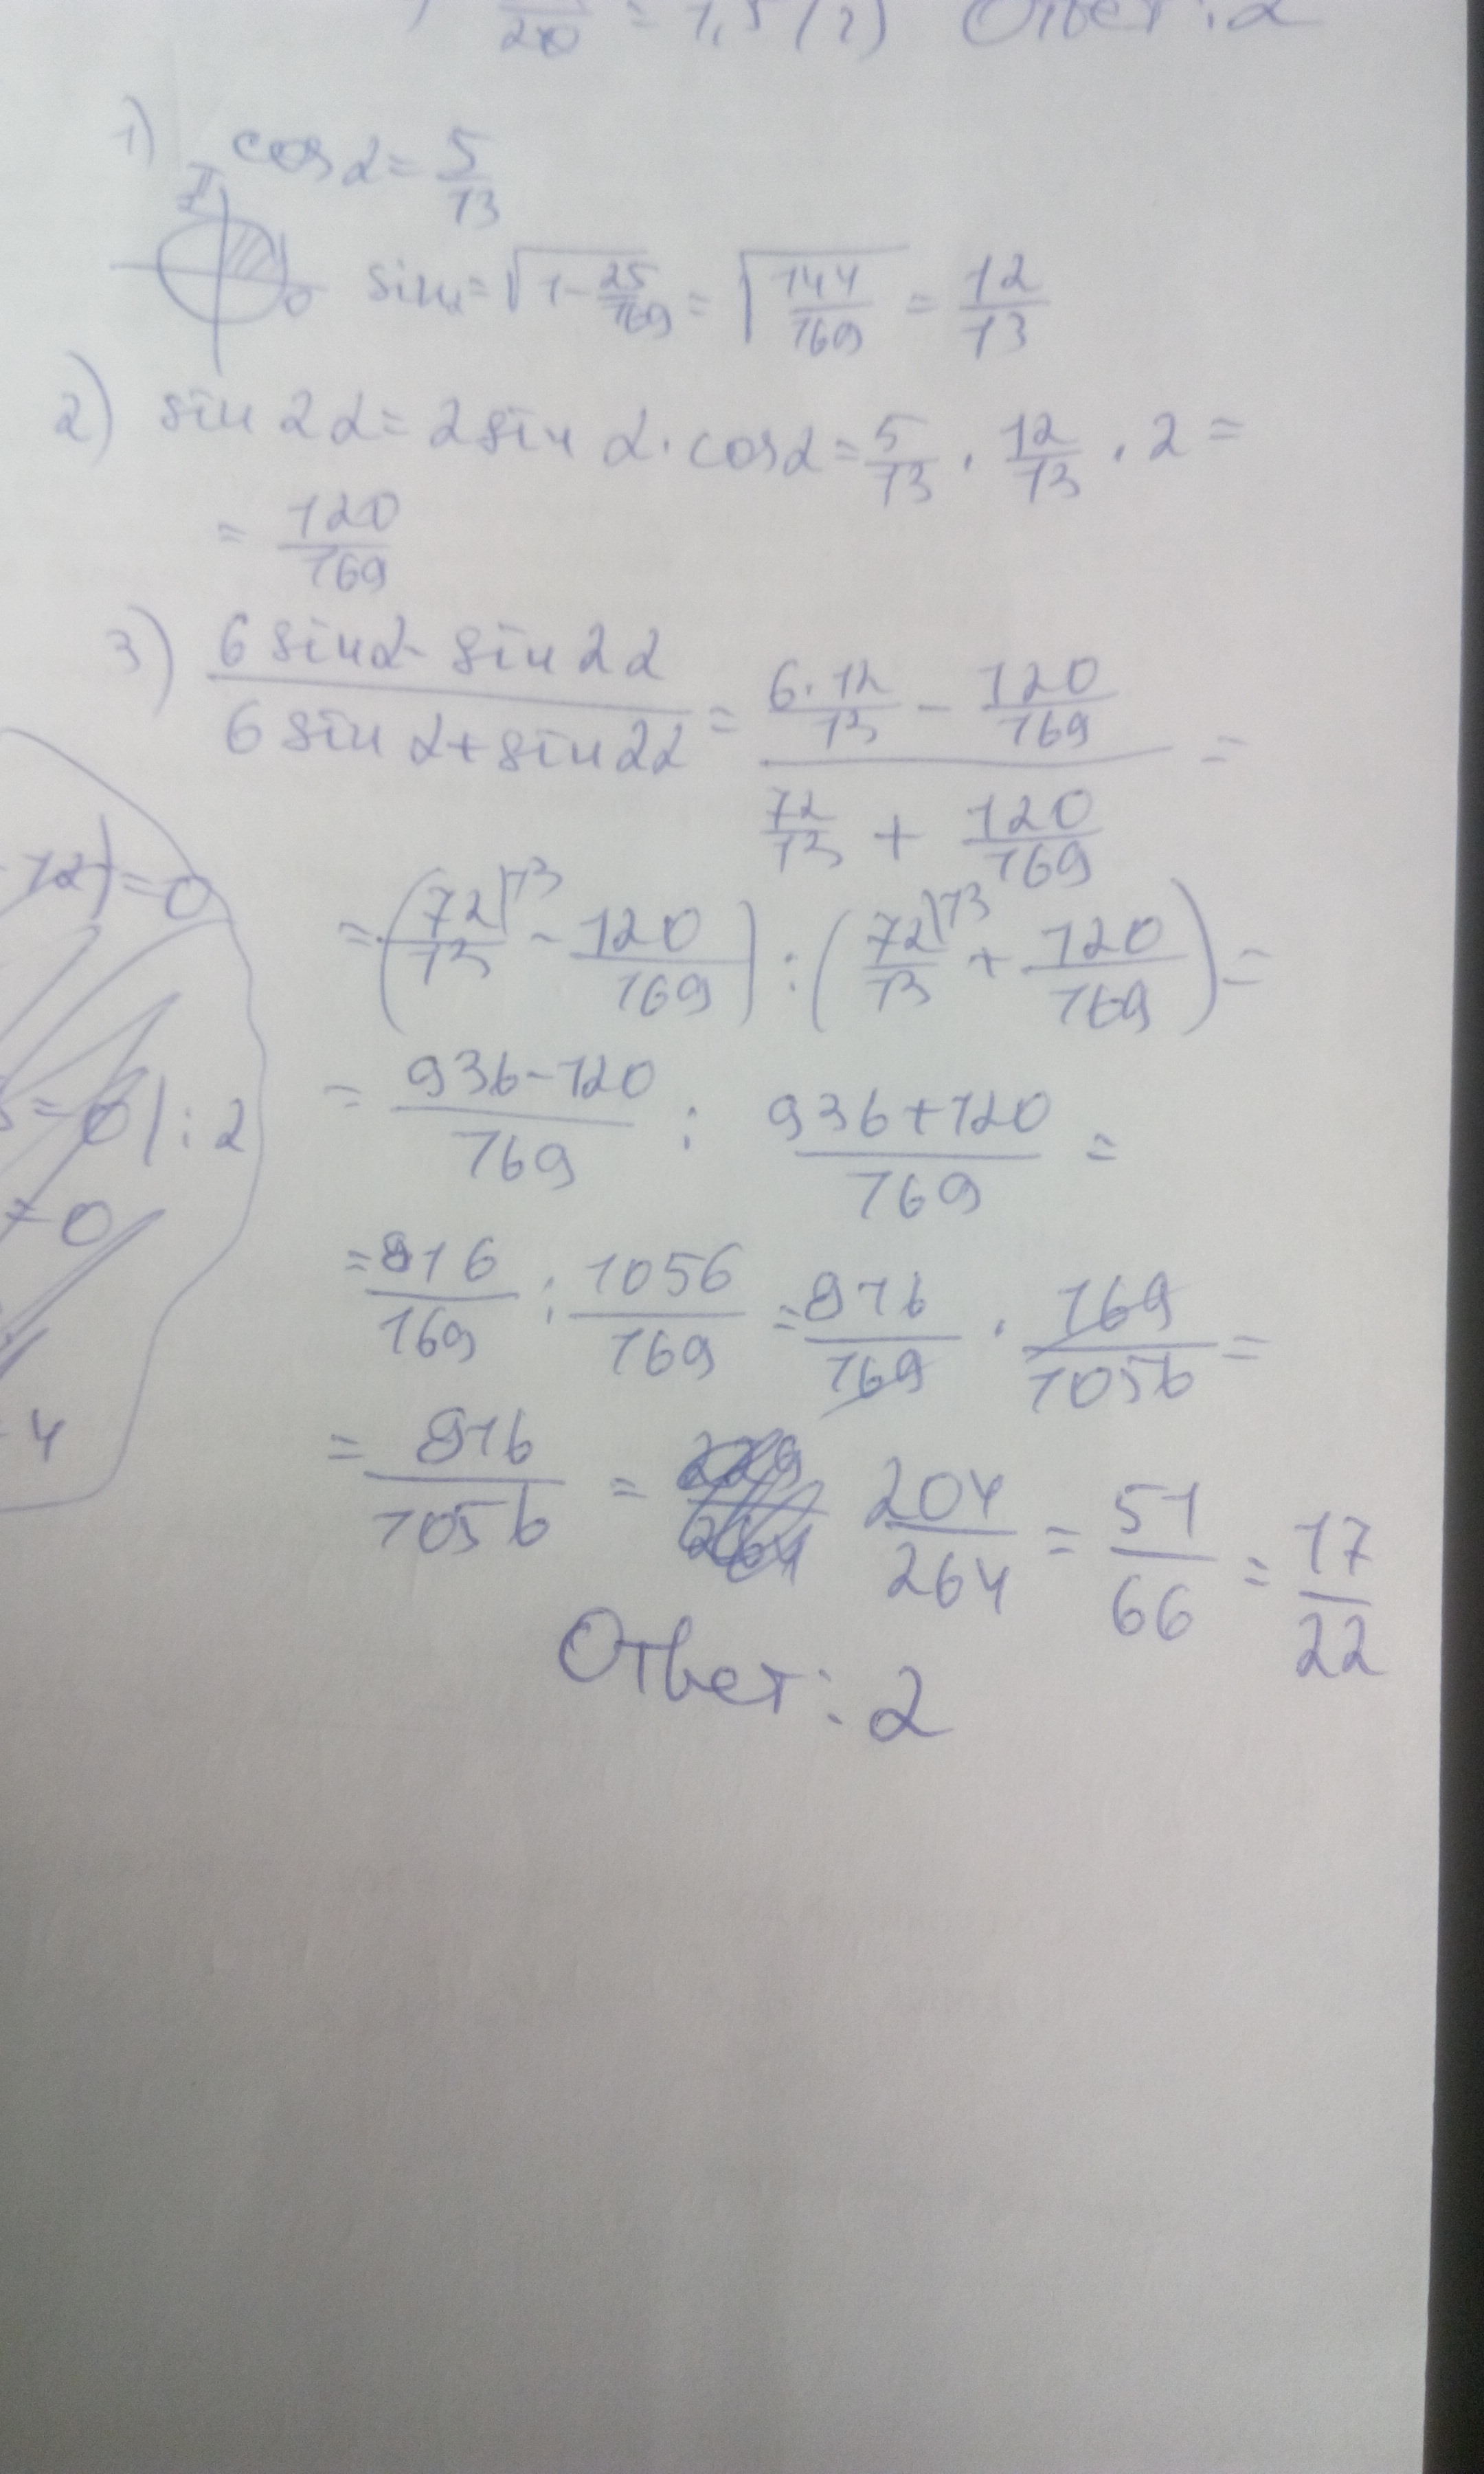 20 = 1,5 (2) Ответ: 2
1) cos α = 5/13
π/2
0
sin α = √(1 - 25/169) = √(144/169) = 12/13
2) sin 2α = 2 sin α · cos α = 5/13 · 12/13 · 2 =
= 120/169
3) (6 sin α - sin 2α)/(6 sin α + sin 2α) = (6·12/13 - 120/169)/(72/13 + 120/169) =
12) = 0
= (72/13|13 - 120/169) : (72/13|13 + 120/169) =
= (936 - 120)/169 : (936 + 120)/169 =
= 0 | : 2
= 0
= 816/169 : 1056/169 = 816/169 · 169/1056 =
4
= 816/1056 = 204/264 = 51/66 = 17/22
Ответ: 2